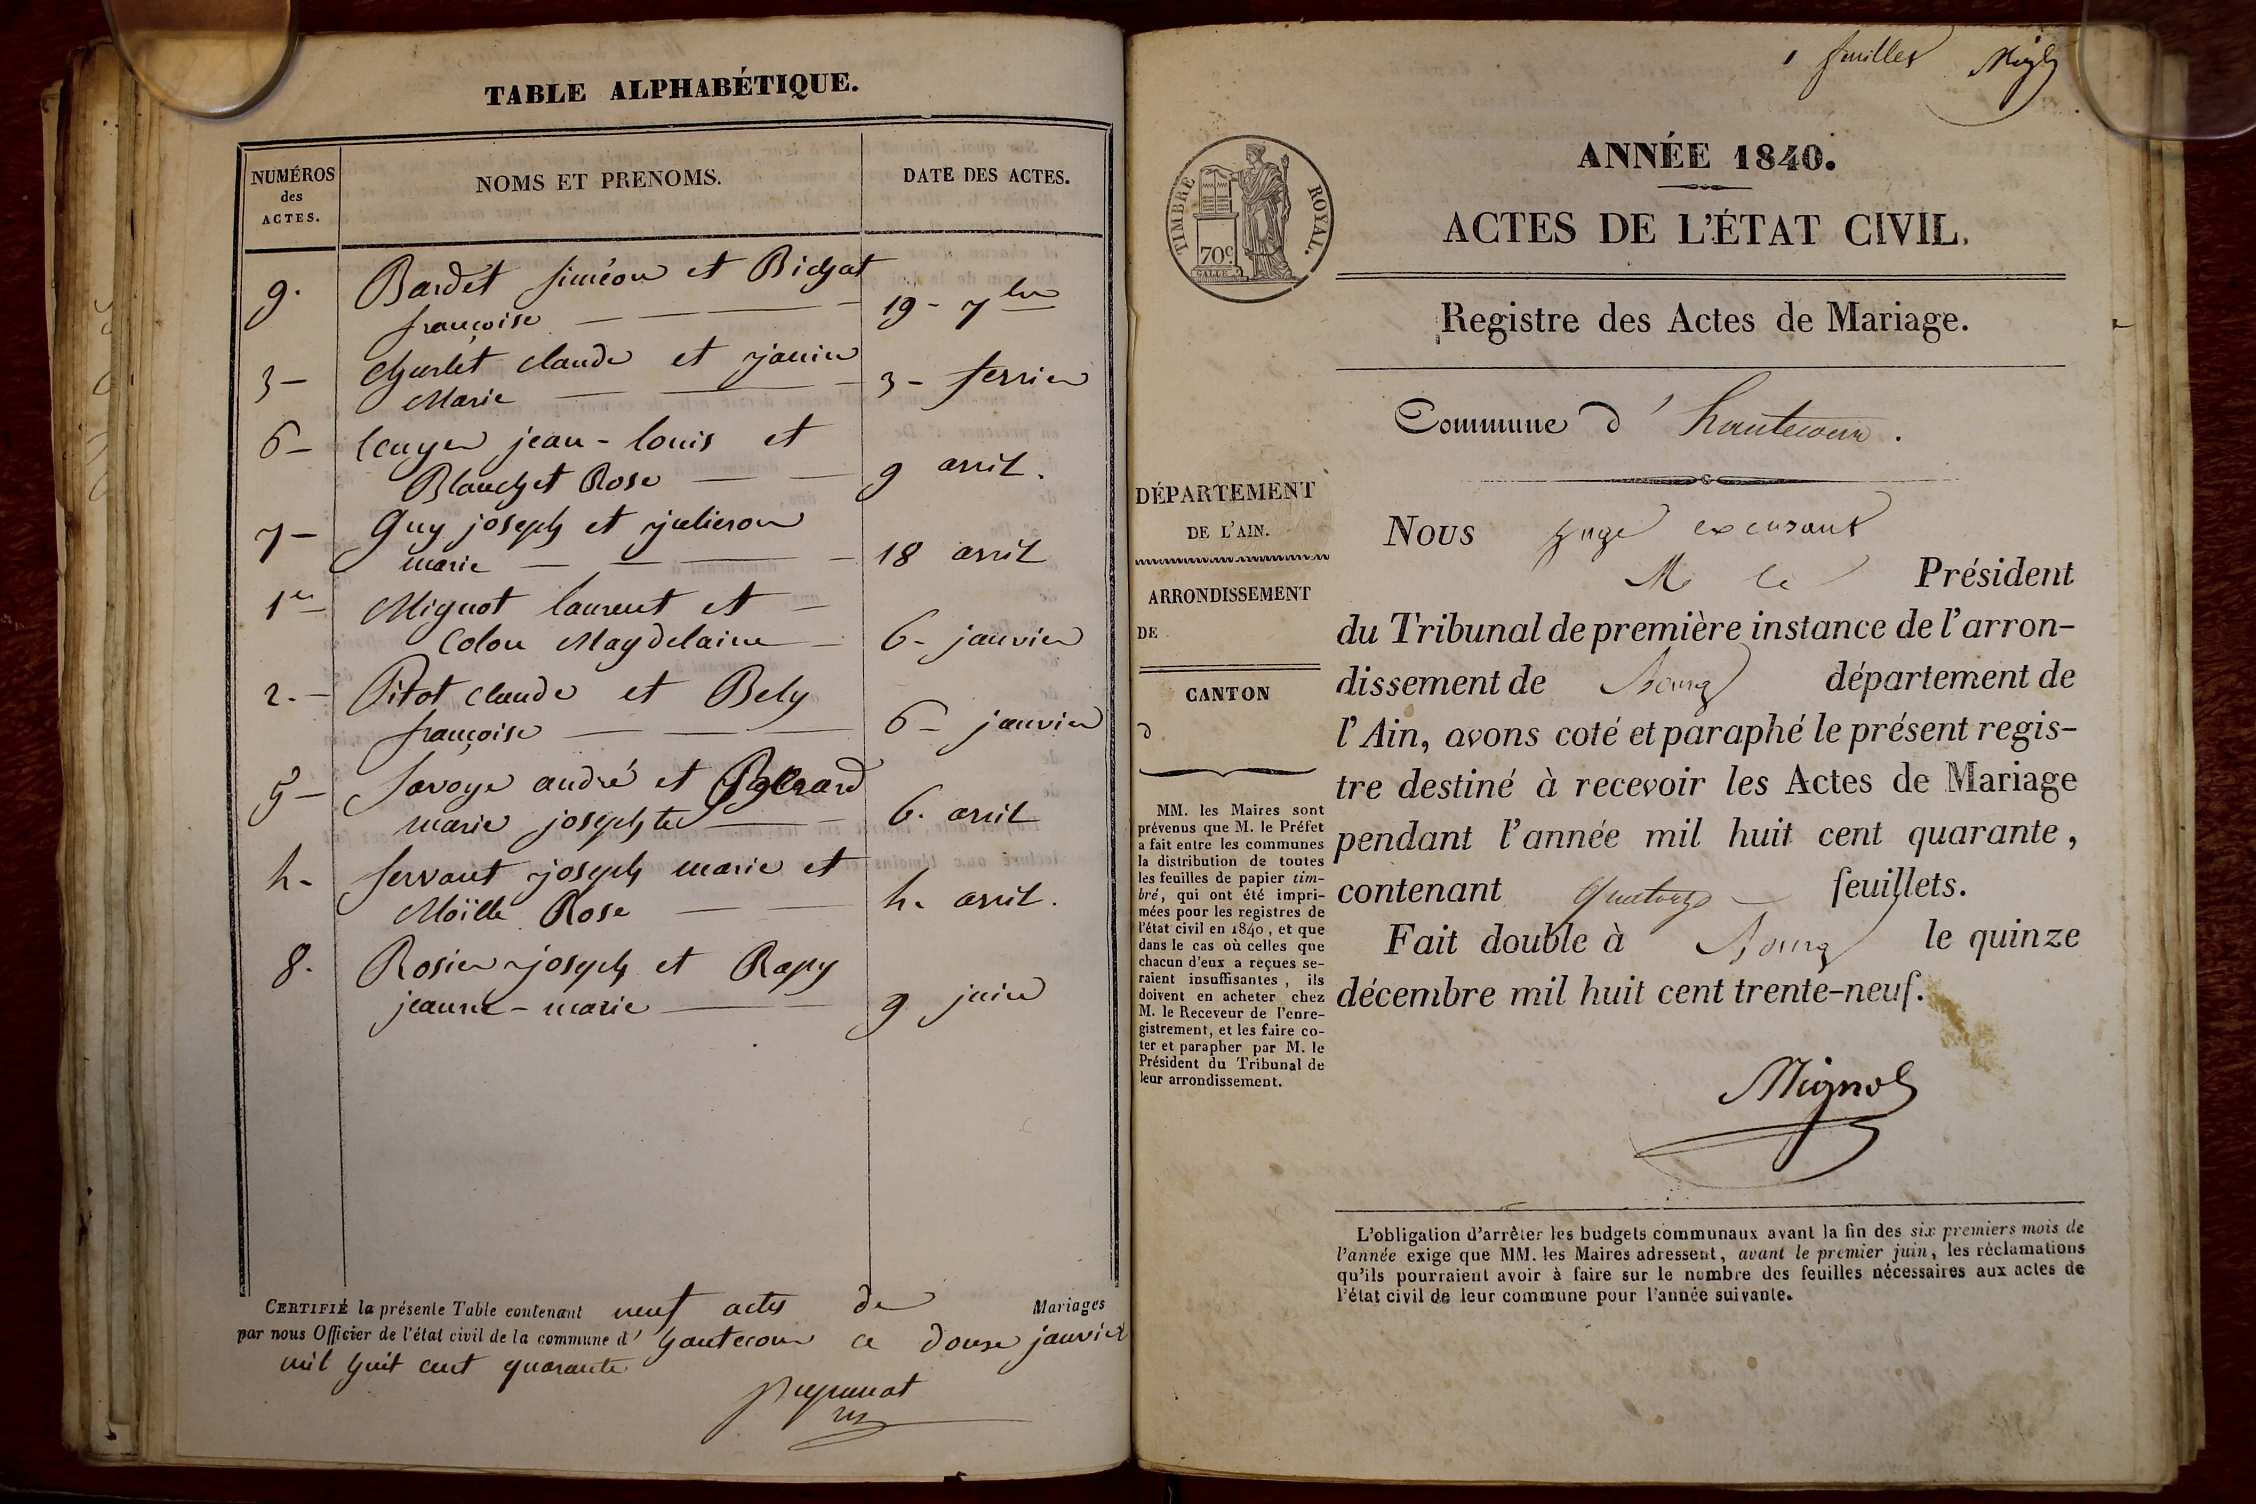 TABLE ALPHABÉTIQUE.
NUMÉROS
des
ACTES.
NOMS ET PRENOMS.
DATE DES ACTES.
9. Bardet siméon et Bichat
françoise 19 - 7bre
3 - Charlet claude et janin
Marie 3 - fevrier
6 - Cuyer jean - louis et
Blanchet Rose 9 avril.
7 - Guy joseph et julieron
marie 18 avril
1er Mignot laurent et
Colon Magdelaine 6 - janvier
2. - Pitot claude et Bely
françoise 6 - janvier
5 - Savoye andré et
marie josephte 6. avril
4 - servant joseph marie et
Moïlle Rose 4. avril.
8. Rosier joseph et Rapy
jeanne - marie 9 juin
CERTIFIÉ la présente Table contenant neuf actes de Mariages
par nous Officier de l'état civil de la commune d' hautecour ce douse janvier
mil huit cent quarante
feuilles
ANNÉE 1840.
TIMBRE ROYAL.
70c
ACTES DE L'ÉTAT CIVIL.
Registre des Actes de Mariage.
Commune d' hautecour.
DÉPARTEMENT
DE L'AIN.
ARRONDISSEMENT
DE
CANTON
d
MM. les Maires sont
prévenus que M. le Préfet
a fait entre les communes
la distribution de toutes
les feuilles de papier tim-
bré, qui ont été impri-
mées pour les registres de
l'état civil en 1840, et que
dans le cas où celles que
chacun d'eux a reçues se-
raient insuffisantes, ils
doivent en acheter chez
M. le Receveur de l'enre-
gistrement, et les faire co-
ter et parapher par M. le
Président du Tribunal de
leur arrondissement.
Nous juge excusant
M. le Président
du Tribunal de première instance de l'arron-
dissement de Bourg département de
l'Ain, avons coté et paraphé le présent regis-
tre destiné à recevoir les Actes de Mariage
pendant l'année mil huit cent quarante,
contenant quatorze feuillets.
Fait double à Bourg le quinze
décembre mil huit cent trente-neuf.
Mignot
L'obligation d'arrêter les budgets communaux avant la fin des six premiers mois de
l'année exige que MM. les Maires adressent, avant le premier juin, les réclamations
qu'ils pourraient avoir à faire sur le nombre des feuilles nécessaires aux actes de
l'état civil de leur commune pour l'année suivante.